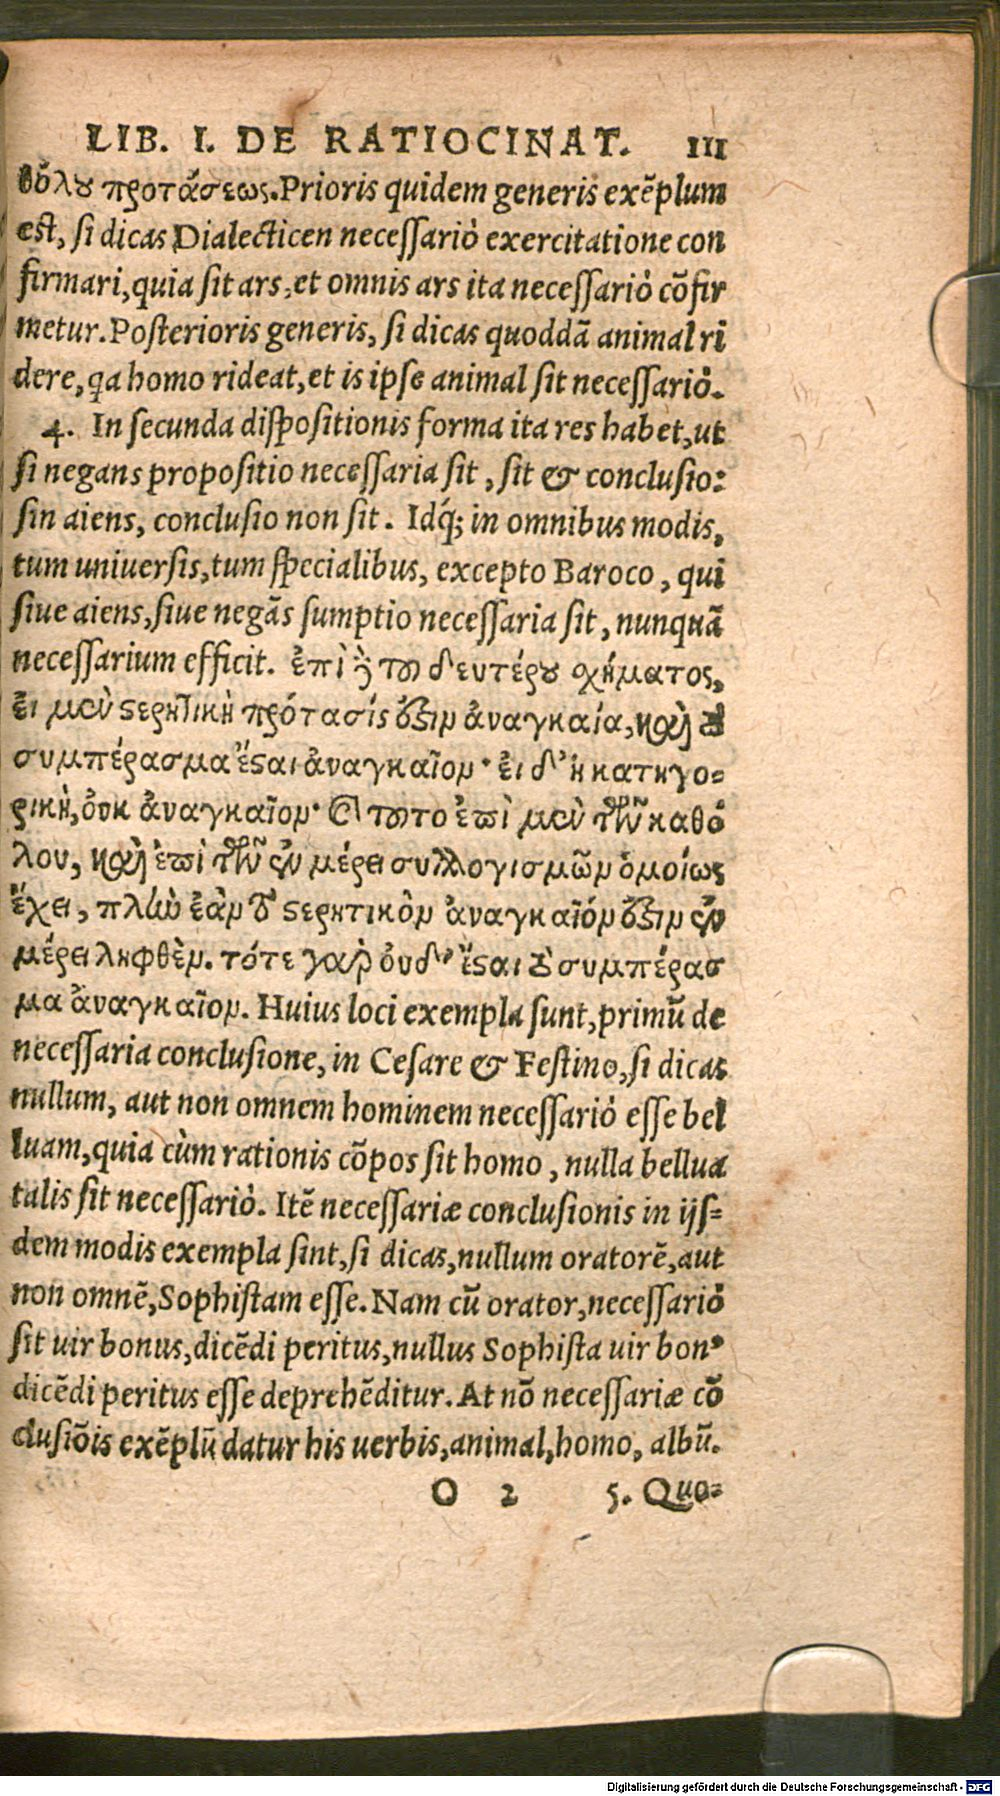 LIB. I. DE RATIOCINAT. 111
θόλου προτάσεως. Prioris quidem generis exẽplum
est, si dicas Dialecticen necessariò exercitatione con
firmari, quia sit ars, et omnis ars ita necessariò cõfir
metur. Posterioris generis, si dicas quoddã animal ri
dere, qa homo rideat, et is ipse animal sit necessariò.
4. In secunda dispositionis forma ita res habet, ut
si negans propositio necessaria sit, sit & conclusio:
sin aiens, conclusio non sit. Idq́; in omnibus modis,
tum uniuersis, tum specialibus, excepto Baroco, qui
siue aiens, siue negãs sumptio necessaria sit, nunquã
necessarium efficit. ἐπὶ ἢ τοῦ δευτέρου σχήματος,
εἰ μὲν στερητικὴ πρότασίς ὅξιν ἀναγκαία, καὶ τὸ
συμπέρασμα ἔσται ἀναγκαῖον· εἰ δ' ἡ κατηγο-
ρικὴ, οὐκ ἀναγκαῖον· Καὶ τοῦτο ἐπὶ μὲν τῶν καθό
λου, καὶ ἐπὶ τῶν ἐν μέρει συλλογισμῶν ὁμοίως
ἔχει, πλὴν ἐὰν τὸ στερητικὸν ἀναγκαῖόν ὅξιν ἐν
μέρει ληφθὲν. τότε γὰρ οὐδ' ἔσται τὸ συμπέρασ
μα ἀναγκαῖον. Huius loci exempla sunt, primũ de
necessaria conclusione, in Cesare & Festino, si dicas
nullum, aut non omnem hominem necessariò esse bel
luam, quia cùm rationis cõpos sit homo, nulla bellua
talis sit necessariò. Itẽ necessariæ conclusionis in ijs-
dem modis exempla sint, si dicas, nullum oratorẽ, aut
non omnẽ, Sophistam esse. Nam cũ orator, necessariò
sit uir bonus, dicẽdi peritus, nullus Sophista uir bon⁹
dicẽdi peritus esse deprehẽditur. At nõ necessariæ cõ
clusiõis exẽplũ datur his uerbis, animal, homo, albũ.
O 2 5. Quo-
Digitalisierung gefördert durch die Deutsche Forschungsgemeinschaft - DFG